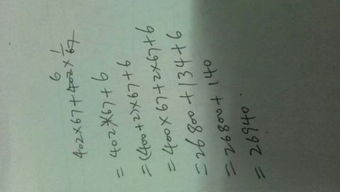 402×67+402×1/67
6
=402×67+6
=(400+2)×67+6
=400×67+2×67+6
=26800+134+6
=26800+140
=26940.